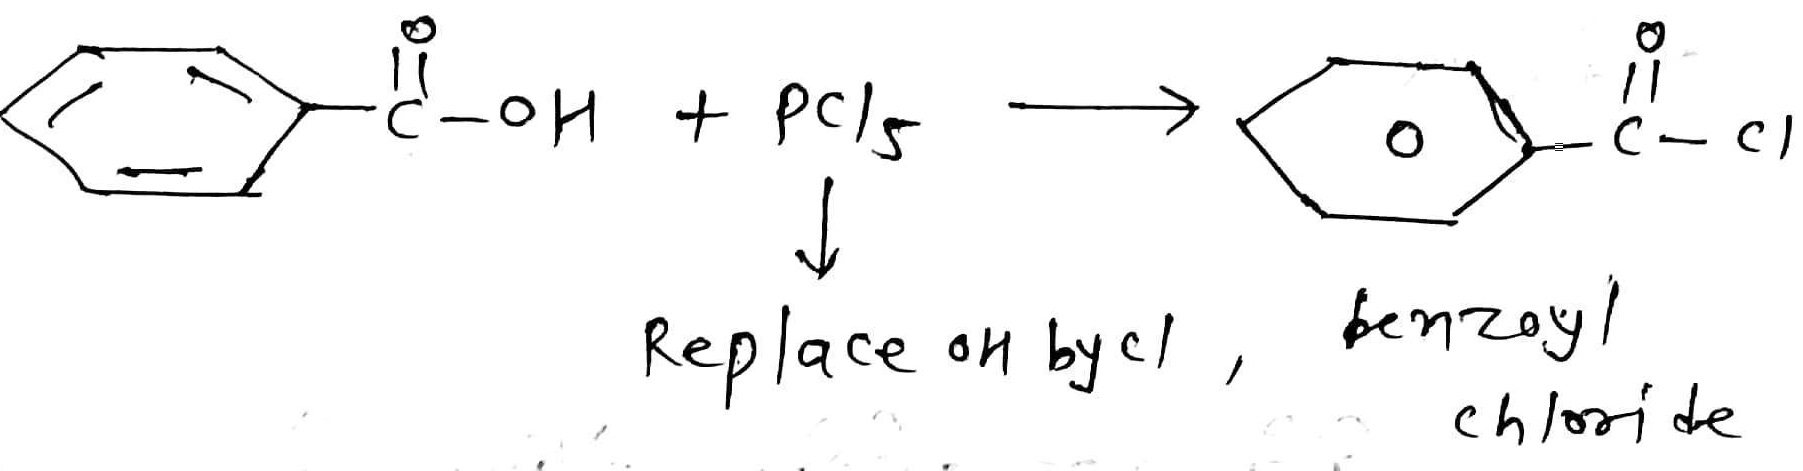 O
C-OH + PCl5
O
C-Cl
Replace OH by cl, benzoyl
chloride